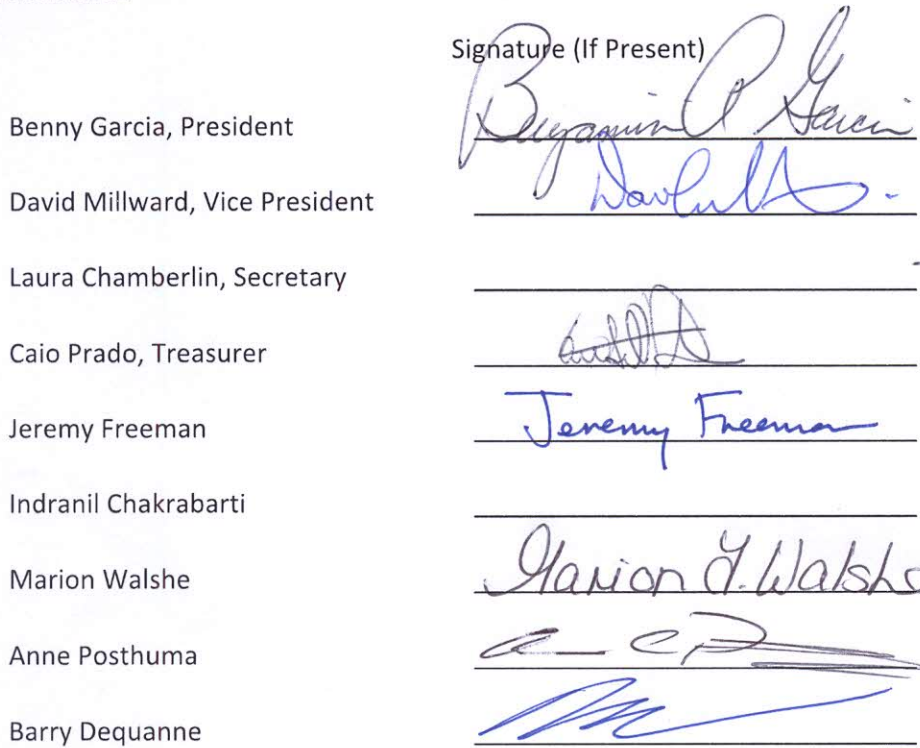 Signature (If Present)
Benny Garcia, President Benjamin P Garcia
David Millward, Vice President
Laura Chamberlin, Secretary
Caio Prado, Treasurer
Jeremy Freeman Jeremy Freeman
Indranil Chakrabarti
Marion Walshe Marion Y. Walshe
Anne Posthuma
Barry Dequanne